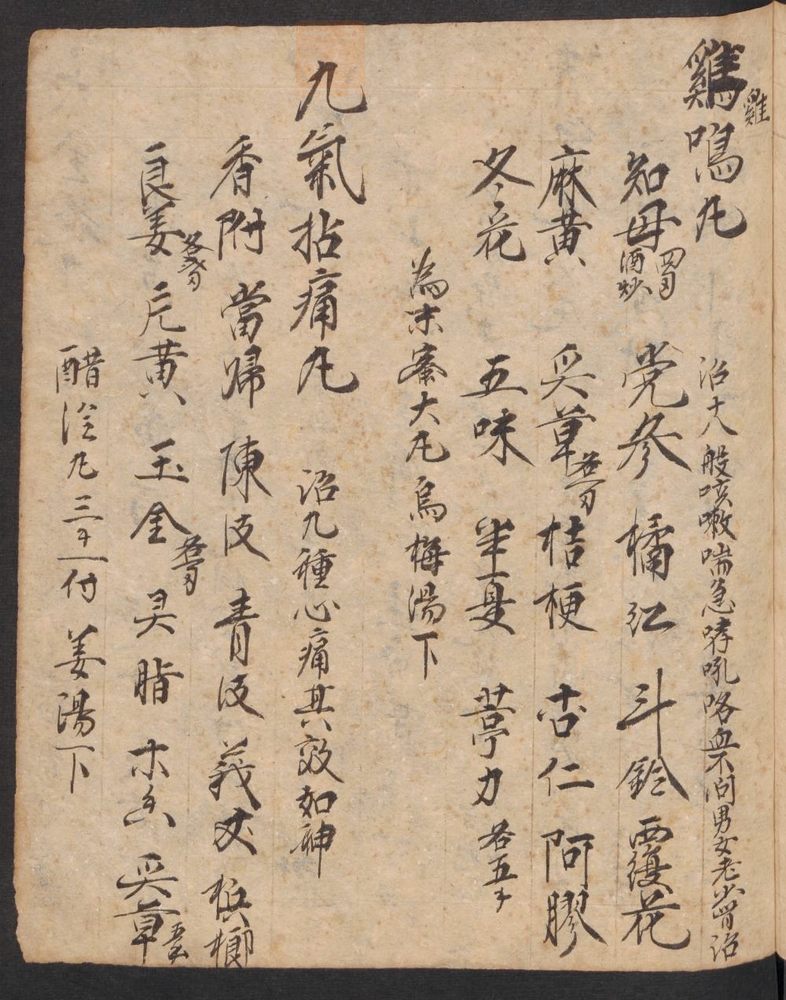 鷄鳴丸 雞 治十八般咳嗽喘急哮吼咯血不问男女老少皆治
知母 四刄 酒炒 党參 橘红 斗鈴 覆花
麻黄 炙草 各一刄 桔梗 杏仁 阿膠
冬花 五味 半夏 葶力 各五千
為末蜜大丸烏梅湯下
九氣拈痛丸 治九種心痛其效如神
香附 當歸 陳皮 青皮 莪朮 梹榔
良姜 元黄 玉金 灵脂 木香 炙草
醋淦丸三千一付姜湯下